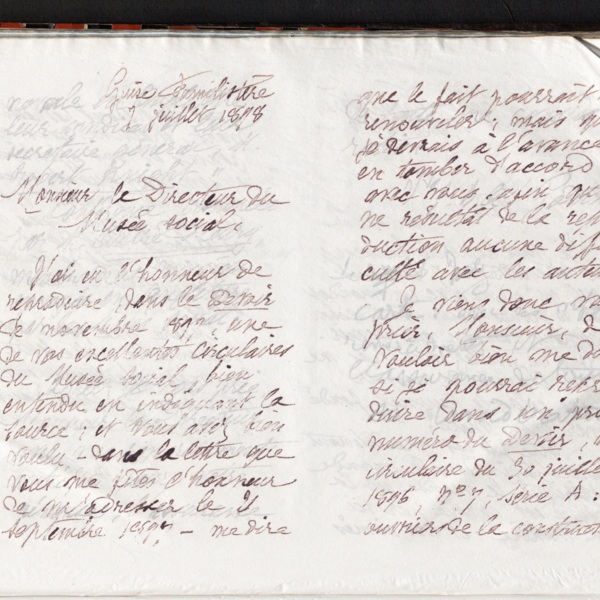 Guise Familistère
7 juillet 1898
Monsieur le Directeur du
Musée social,
J'ai eu l'honneur de
reproduire dans le Devoir
de novembre 1897, une
de vos excellentes circulaires
du Musée social, bien
entendu en indiquant la
source; et vous avez bien
voulu - dans la lettre que
vous me fîtes l'honneur
de m'adresser le
septembre 1897 - me dire
que le fait pourrait
renouveler; mais qu
je devrais à l'avance
en tomber d'accord
avec vous afin qu
ne résultât de la repro
duction aucune diffi
culté avec les auteu
Je viens donc v
prier, Monsieur, d
vouloir bien me di
si je pourrai repro
duire dans un pro
numéro du Devoir,
circulaire du 30 juille
1896, No 7, série A:
ouvriers de la construction